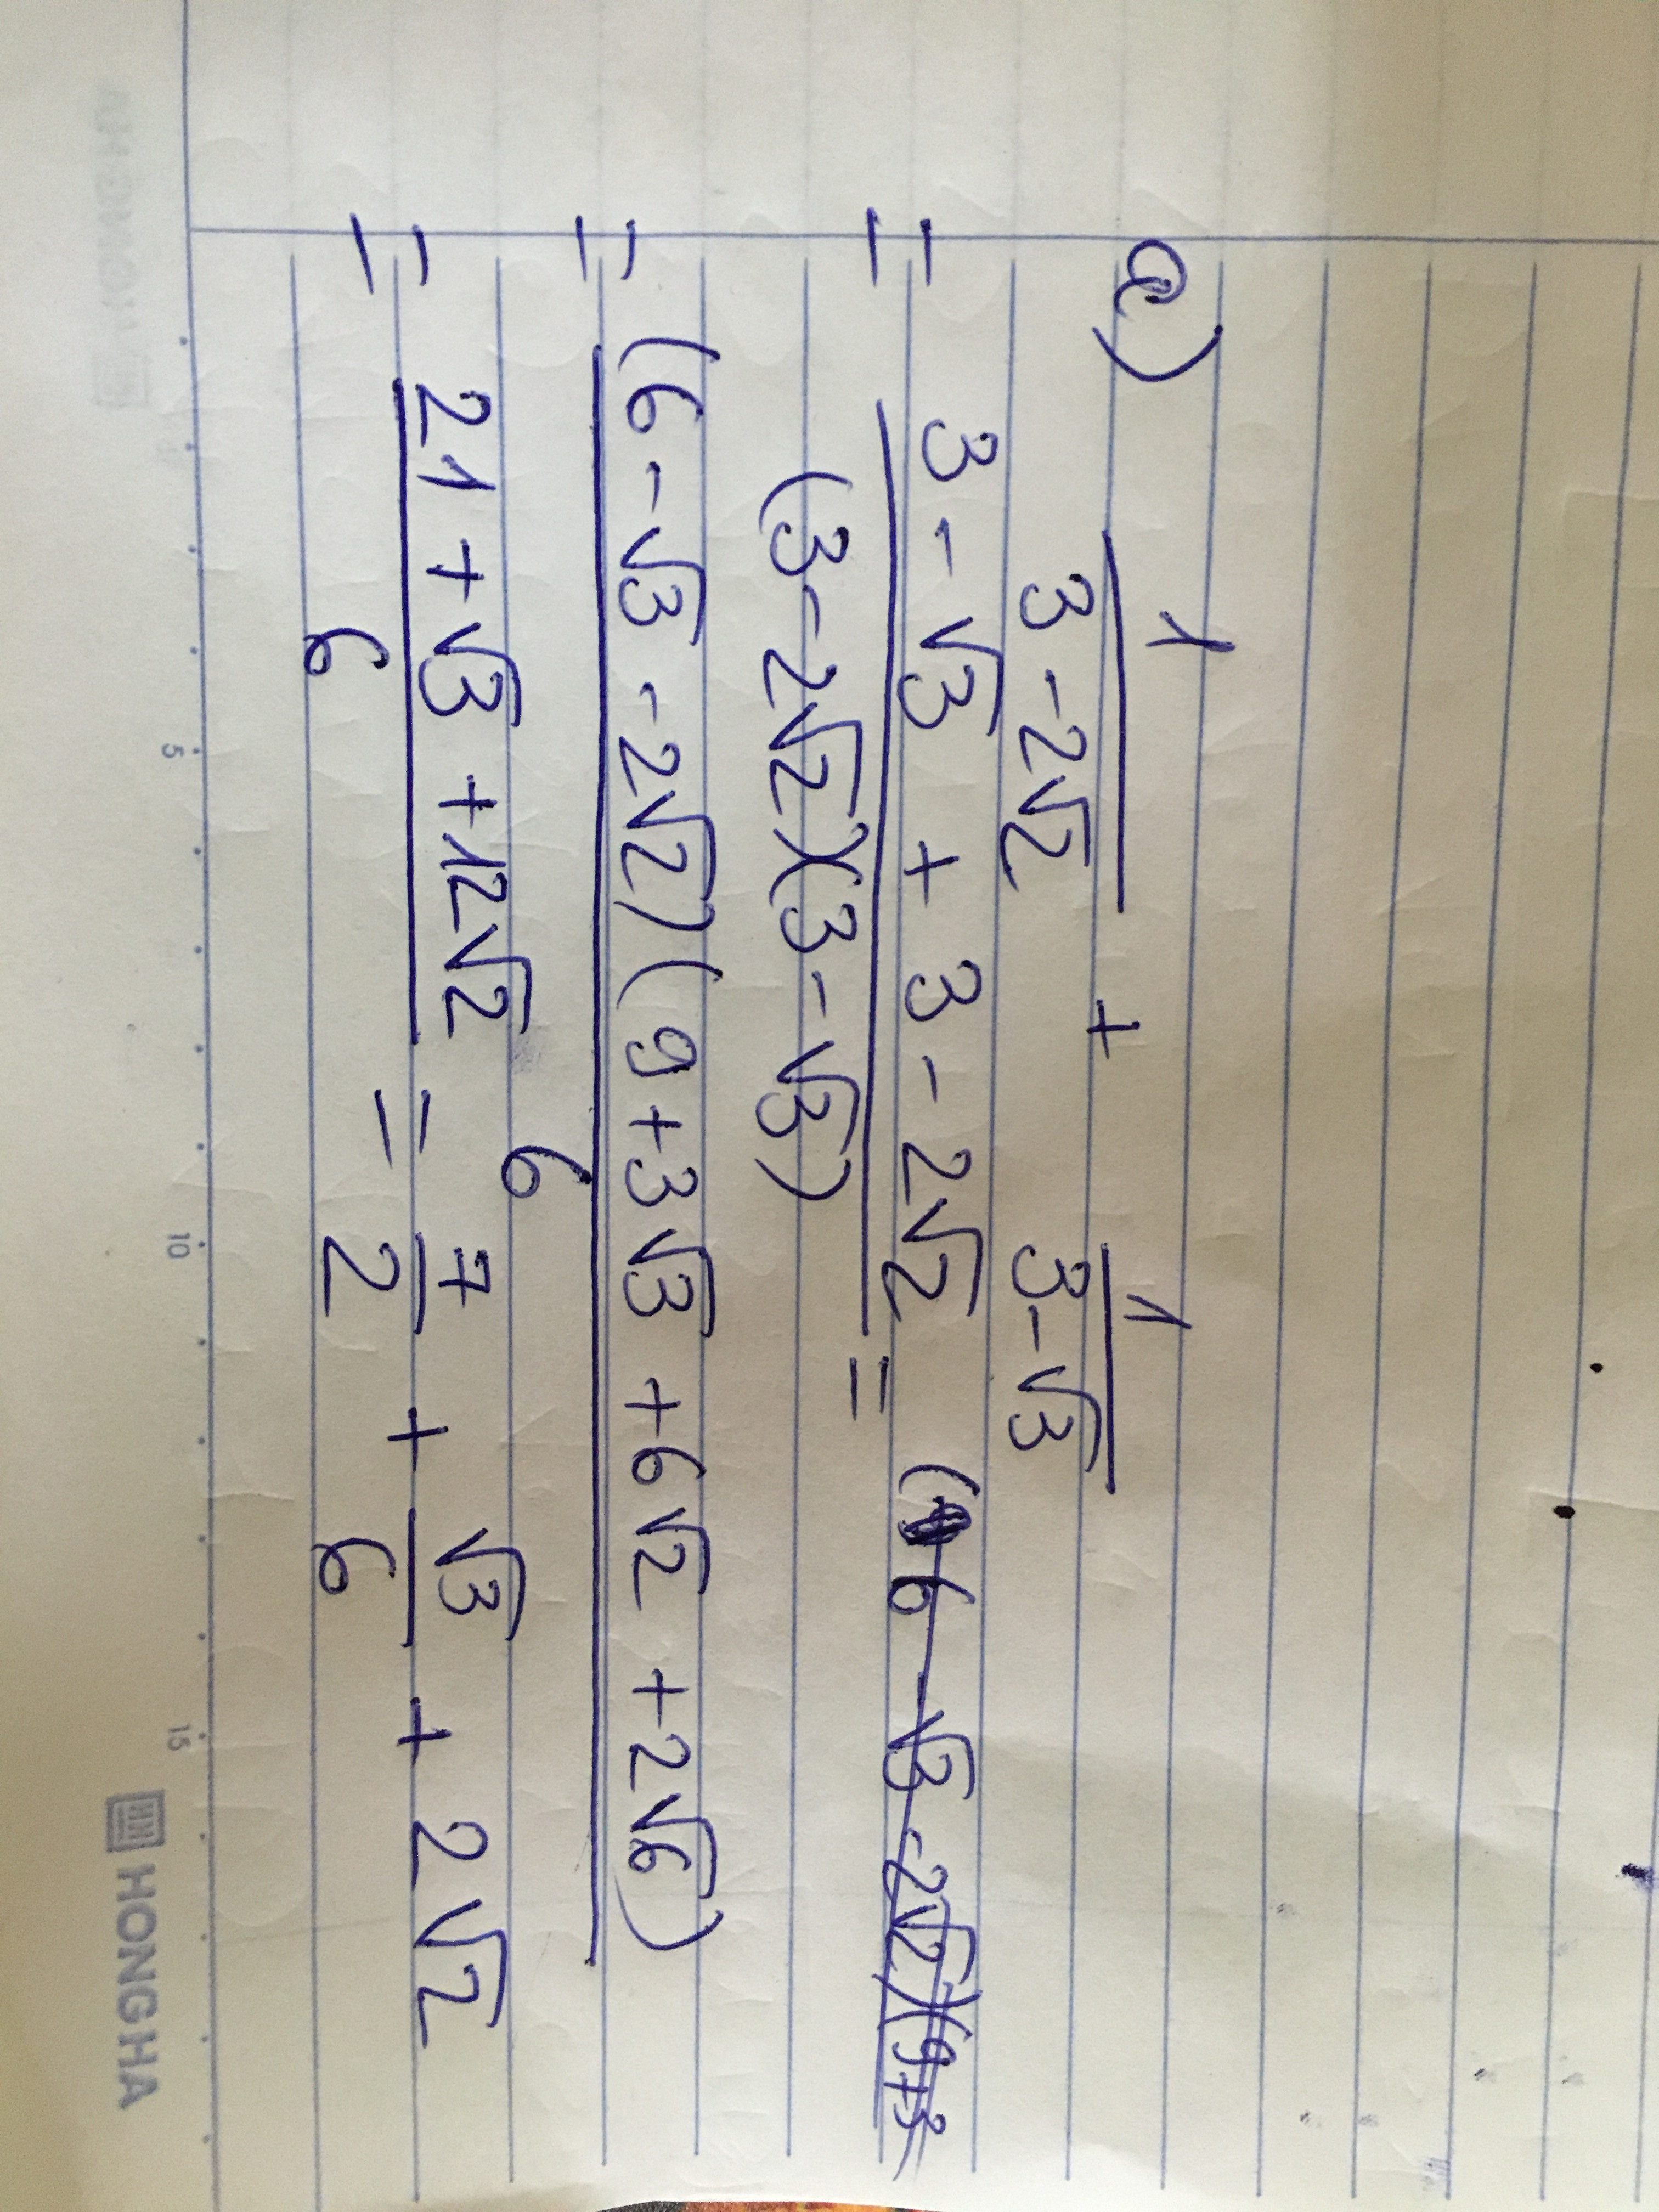 a) 1/(3 - 2√2) + 1/(3 - √3)
= (3 - √3 + 3 - 2√2)/((3 - 2√2)(3 - √3)) = (6 - √3 - 2√2)(9+3
= (6 - √3 - 2√2)(9 + 3√3 + 6√2 + 2√6)/6
= (21 + √3 + 12√2)/6 = 7/2 + √3/6 + 2√2
5 10 15
HONG HA